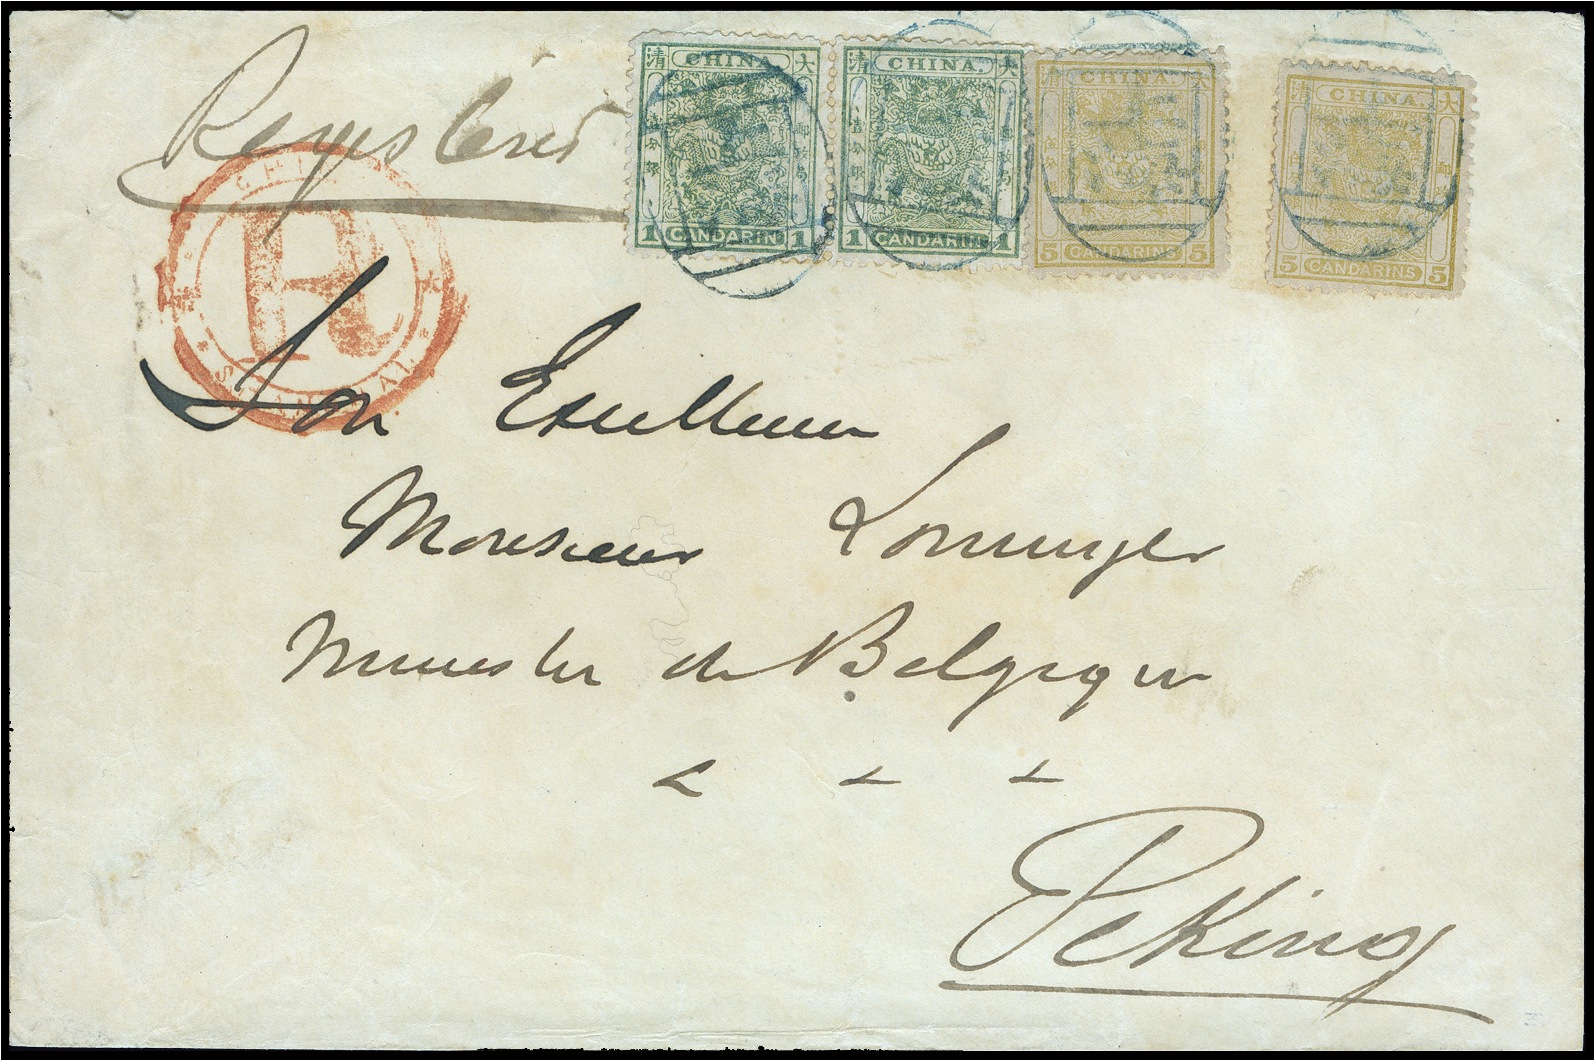 Registered
清 CHINA. 大
1 CANDARIN 1
清 CHINA. 大
1 CANDARIN 1
清 CHINA. 大
5 CANDARINS 5
清 CHINA. 大
5 CANDARINS 5
CHINA
R
SHANGHAI
Son Excellence
Monsieur
Ministre de Belgique
Peking